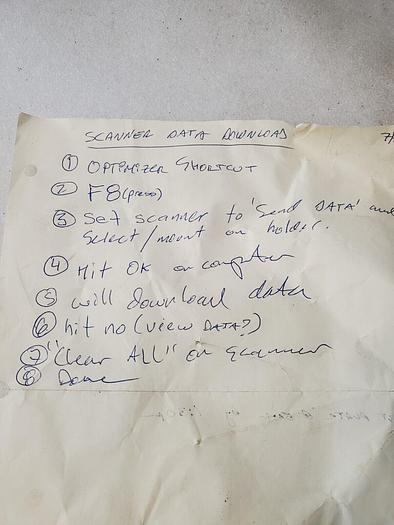 SCANNER DATA DOWNLOAD
7/
① OPTIMIZER SHORTCUT
② F8 (press)
③ Set scanner to 'Send DATA' and
Select/mount on holder.
④ Hit OK on computer
⑤ will download data
⑥ hit no (view DATA?)
⑦ "Clear ALL" on scanner
⑧ Done